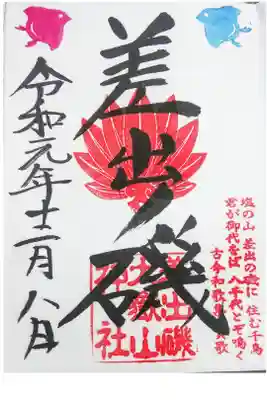 塩の山 差出の磯に 住む千鳥
君が御代をば 八千代とぞ鳴く
古今和歌集 賀歌
差出磯
差出磯
大嶽山
神社
令和元年十二月八日